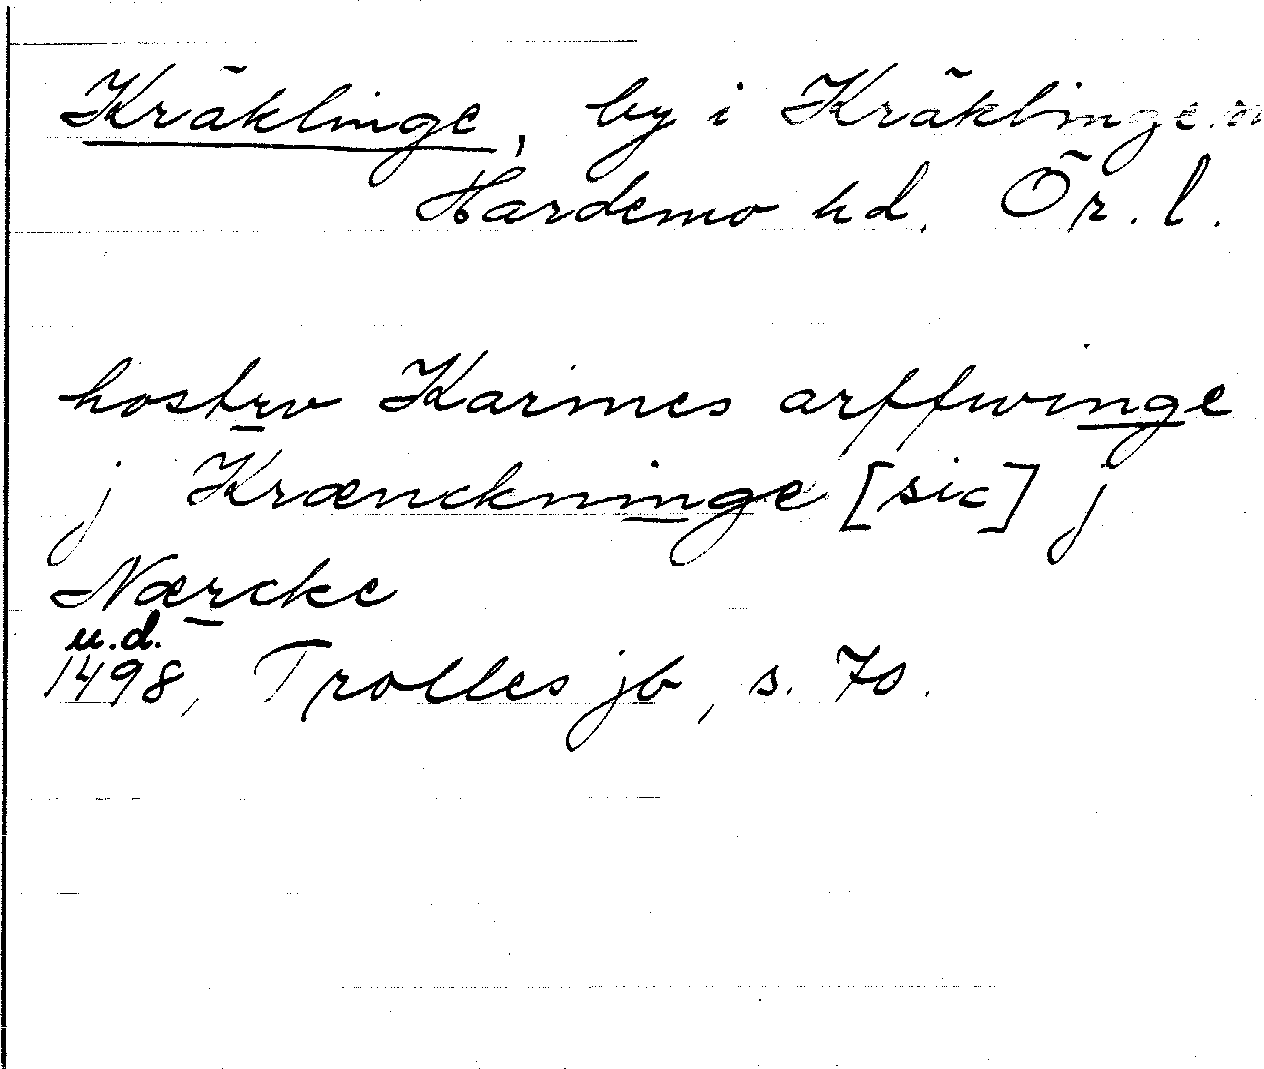 Kräklinge, by i Kräklinge sn
Hardemo hd. Ör. l.
hostrv Karines arffwinge
j Krænckninge [sic] j
Nærcke
u.d.
1498, Trolles jb, s. 70.